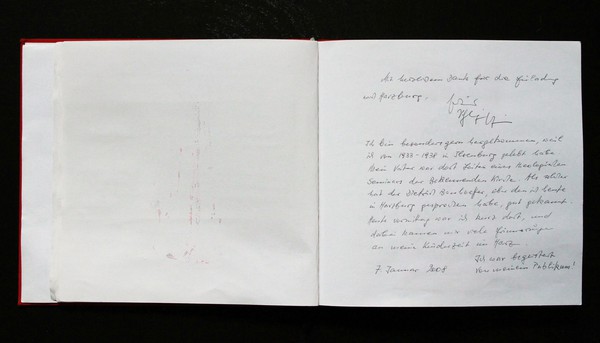 herzlichem Danke für die Einladung
Harzburg.
Ich bin besonders gern hergekommen, weil
ich von 1933-1938 in Ilsenburg gelebt habe.
Mein Vater war dort Leiter eines theologischen
Seminars der Bekennenden Kirche. Als solcher
hat Dietrich Bonhoeffer, über den ich heute
in Harzburg gesprochen habe, gut gekannt.
Heute vormittag war ich kurz dort, und
dabei kamen mir viele Erinnerungen
an meine Kinderzeit im Harz.
7. Januar 2008
Ich war begeistert
von meinem Publikum!